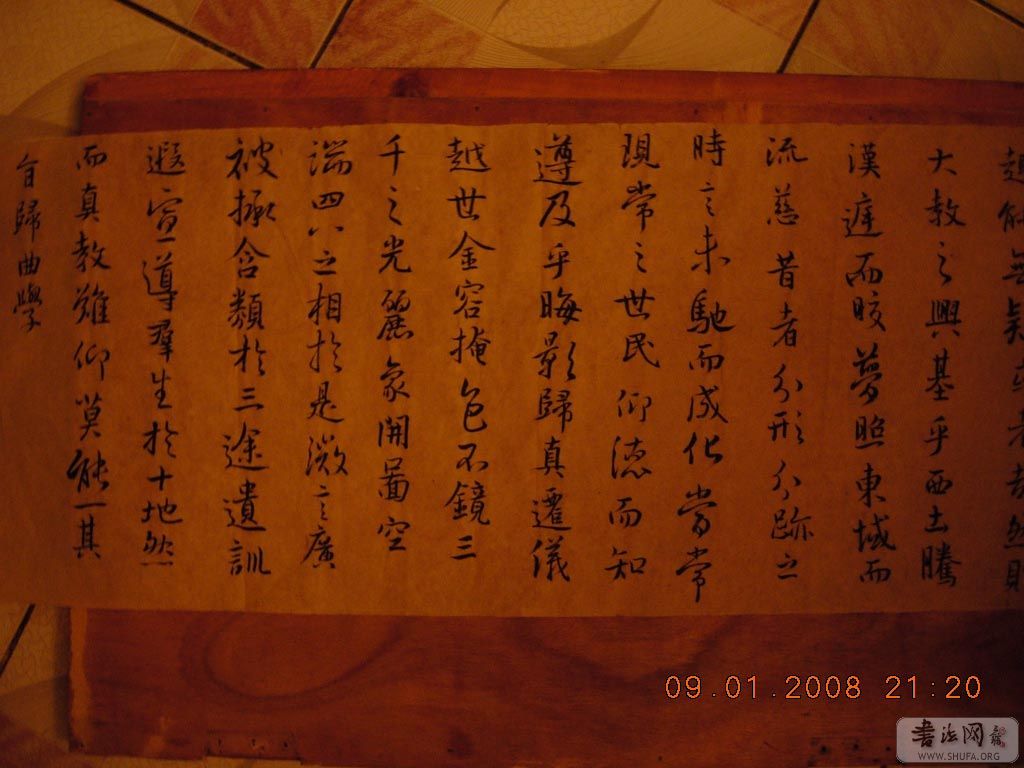 無疑或者哉然則
大教之興基乎西土騰
漢庭而皎夢照東域而
流慈昔者分形分跡之
時言未馳而成化當常
現常之世民仰德而知
遵及乎晦影歸真遷儀
越世金容掩色不鏡三
千之光麗象開圖空
端四八之相於是微言廣
被拯含類於三途遺訓
遐宣導羣生於十地然
而真教難仰莫能一其
旨歸曲學
09.01.2008 21:20
書法网
WWW.SHUFA.ORG